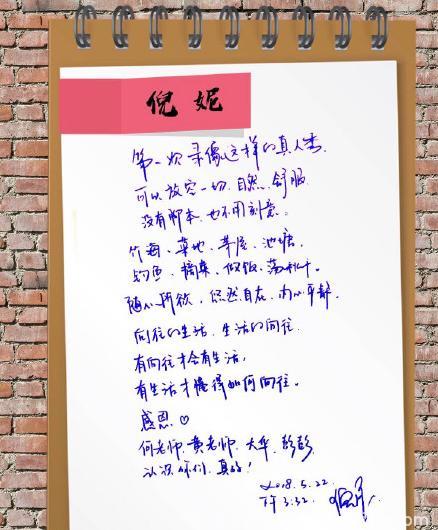 倪妮
第一次录像这样的真人秀
可以放空一切.自然.舒服
没有脚本.也不用刻意。
竹海、草地、茅屋、池塘.
钓鱼、摘菜、做饭、荡秋千.
随心所欲.悠然自在.内心平静.
向往的生活.生活的向往.
有向往才会有生活,
有生活才懂得如何向往。
感恩♡
何老师.黄老师.大华.彭彭
认识你们.真好!
2018.5.22
下午3:32.